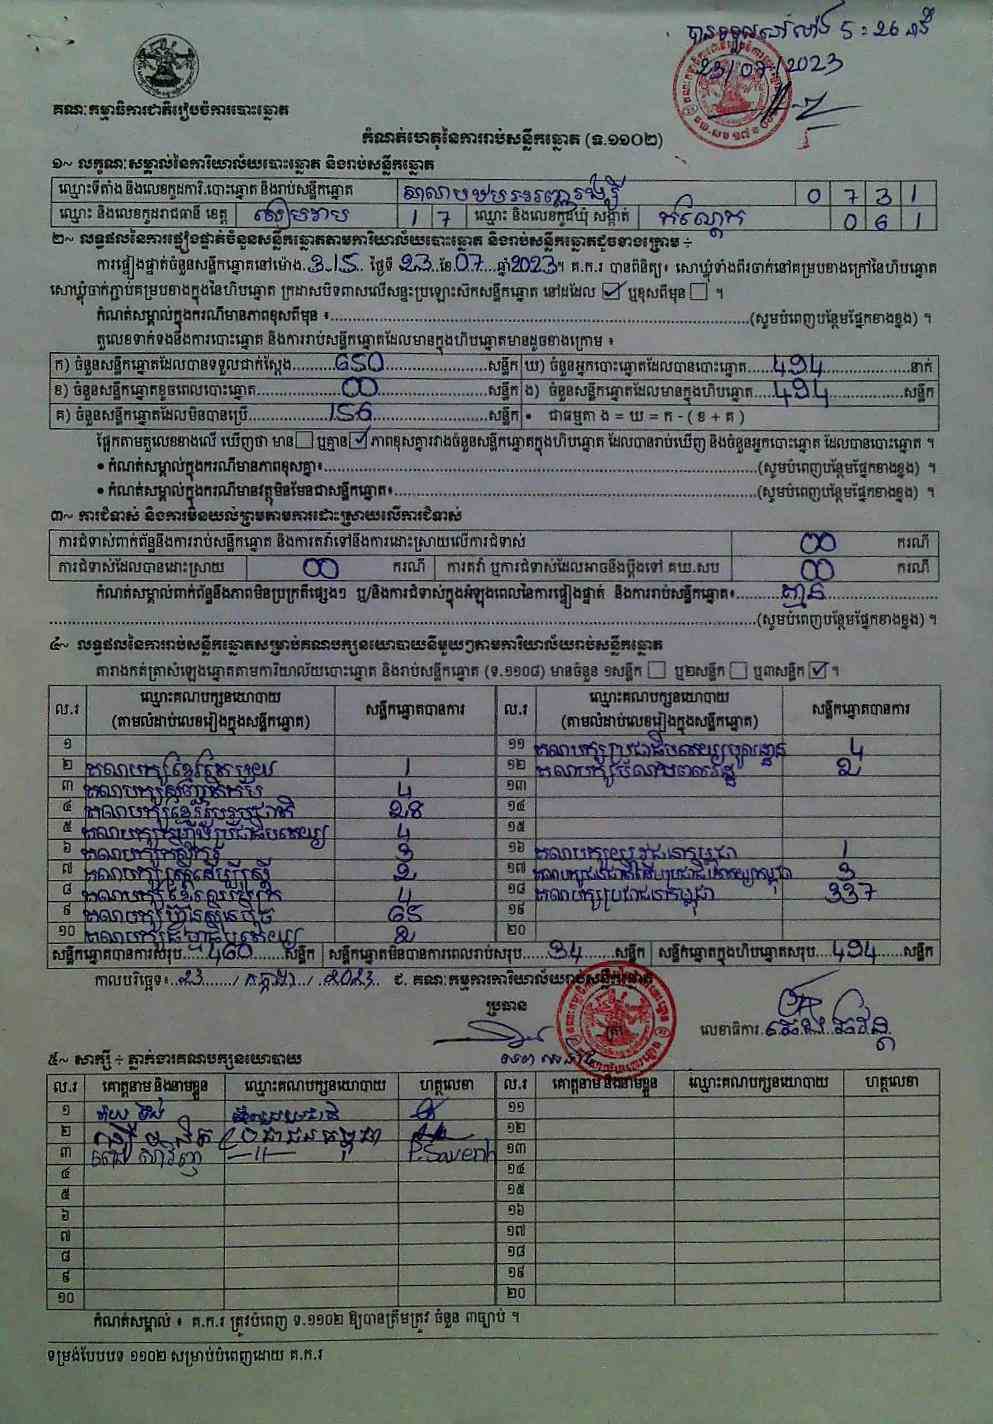 បានទទួលនៅម៉ោង 5:26 នាទី
23/07/2023
គណៈកម្មាធិការជាតិរៀបចំការបោះឆ្នោត
កំណត់ហេតុនៃការរាប់សន្លឹកឆ្នោត (ទ.១១០២)
១~ លក្ខណៈសម្គាល់នៃការិយាល័យបោះឆ្នោត និងរាប់សន្លឹកឆ្នោត
ឈ្មោះទីតាំង និងលេខកូដការិ.បោះឆ្នោត និងរាប់សន្លឹកឆ្នោត 0 7 3 1
ឈ្មោះ និងលេខកូដរាជធានី ខេត្ត សៀមរាប 1 7 ឈ្មោះ និងលេខកូដឃុំ សង្កាត់ 0 6 1
២~ លទ្ធផលនៃការផ្ទៀងផ្ទាត់ចំនួនសន្លឹកឆ្នោតតាមការិយាល័យបោះឆ្នោត និងរាប់សន្លឹកឆ្នោតដូចខាងក្រោម ÷
ការផ្ទៀងផ្ទាត់ចំនួនសន្លឹកឆ្នោតនៅម៉ោង 3:15 ថ្ងៃទី 23 ខែ 07 ឆ្នាំ 2023។ គ.ក.រ បានពិនិត្យ៖ សោឃ្លុំទាំងពីរចាក់នៅគម្របខាងក្រៅនៃហិបឆ្នោត
សោឃ្លុំចាក់ភ្ជាប់គម្របខាងក្នុងនៃហិបឆ្នោត ក្រដាសបិទពាសលើសន្ទះប្រឡោះសឹកសន្លឹកឆ្នោត នៅដដែល ☑ ឬខុសពីមុន ☐ ។
កំណត់សម្គាល់ក្នុងករណីមានភាពខុសពីមុន ៖ (សូមបំពេញបន្ថែមផ្នែកខាងខ្នង) ។
តួលេខទាក់ទងនឹងការបោះឆ្នោត និងការរាប់សន្លឹកឆ្នោតដែលមានក្នុងហិបឆ្នោតមានដូចខាងក្រោម ៖
ក) ចំនួនសន្លឹកឆ្នោតដែលបានទទួលជាក់ស្ដែង 650 សន្លឹក ឃ) ចំនួនអ្នកបោះឆ្នោតដែលបានបោះឆ្នោត 494 នាក់
ខ) ចំនួនសន្លឹកឆ្នោតខូចពេលបោះឆ្នោត 00 សន្លឹក ង) ចំនួនសន្លឹកឆ្នោតដែលមានក្នុងហិបឆ្នោត 494 សន្លឹក
គ) ចំនួនសន្លឹកឆ្នោតដែលមិនបានប្រើ 156 សន្លឹក • ជាធម្មតា ង = ឃ = ក - ( ខ + គ )
ផ្អែកតាមតួលេខខាងលើ ឃើញថា មាន ☐ ឬគ្មាន ☑ ភាពខុសគ្នារវាងចំនួនសន្លឹកឆ្នោតក្នុងហិបឆ្នោត ដែលបានរាប់ឃើញ និងចំនួនអ្នកបោះឆ្នោត ដែលបានបោះឆ្នោត ។
• កំណត់សម្គាល់ក្នុងករណីមានភាពខុសគ្នា៖ (សូមបំពេញបន្ថែមផ្នែកខាងខ្នង) ។
• កំណត់សម្គាល់ក្នុងករណីមានវត្ថុមិនមែនជាសន្លឹកឆ្នោត៖ (សូមបំពេញបន្ថែមផ្នែកខាងខ្នង) ។
៣~ ការជំទាស់ និងការមិនយល់ព្រមតាមការដោះស្រាយលើការជំទាស់
ការជំទាស់ពាក់ព័ន្ធនឹងការរាប់សន្លឹកឆ្នោត និងការតវ៉ាទៅនឹងការដោះស្រាយលើការជំទាស់ 00 ករណី
ការជំទាស់ដែលបានដោះស្រាយ 00 ករណី ការតវ៉ា ឬការជំទាស់ដែលអាចនឹងប្ដឹងទៅ គឃ.សប 00 ករណី
កំណត់សម្គាល់ពាក់ព័ន្ធនឹងភាពមិនប្រក្រតីផ្សេងៗ ឬ/និងការជំទាស់ក្នុងអំឡុងពេលនៃការផ្ទៀងផ្ទាត់ និងការរាប់សន្លឹកឆ្នោត៖ គ្មាន
(សូមបំពេញបន្ថែមផ្នែកខាងខ្នង) ។
៤~ លទ្ធផលនៃការរាប់សន្លឹកឆ្នោតសម្រាប់គណបក្សនយោបាយនីមួយៗតាមការិយាល័យរាប់សន្លឹកឆ្នោត
តារាងកត់ត្រាសំឡេងឆ្នោតតាមការិយាល័យបោះឆ្នោត និងរាប់សន្លឹកឆ្នោត (ទ.១១០៨) មានចំនួន ១សន្លឹក ☐ ឬ២សន្លឹក ☐ ឬ៣សន្លឹក ☑ ។
ល.រ ឈ្មោះគណបក្សនយោបាយ (តាមលំដាប់លេខរៀងក្នុងសន្លឹកឆ្នោត) សន្លឹកឆ្នោតបានការ ល.រ ឈ្មោះគណបក្សនយោបាយ (តាមលំដាប់លេខរៀងក្នុងសន្លឹកឆ្នោត) សន្លឹកឆ្នោតបានការ
១ ១១ គណបក្សប្រជាធិបតេយ្យមូលដ្ឋាន 4
២ គណបក្សខ្មែរតែមួយ 1 ១២ គណបក្ស 2
៣ គណបក្ស 4 ១៣
៤ គណបក្សខ្មែររួបរួមជាតិ 28 ១៤
៥ គណបក្ស 4 ១៥
៦ គណបក្សកសិករ 3 ១៦ គណបក្សយុវជនកម្ពុជា 1
៧ គណបក្សស្ត្រីដើម្បីស្ត្រី 2 ១៧ គណបក្ស 3
៨ គណបក្ស 4 ១៨ គណបក្សប្រជាជនកម្ពុជា 337
៩ គណបក្សហ៊្វុនស៊ិនប៉ិច 65 ១៩
១០ គណបក្សធម្មាធិបតេយ្យ 2 ២០
សន្លឹកឆ្នោតបានការសរុប 460 សន្លឹក សន្លឹកឆ្នោតមិនបានការពេលរាប់សរុប 34 សន្លឹក សន្លឹកឆ្នោតក្នុងហិបឆ្នោតសរុប 494 សន្លឹក
កាលបរិច្ឆេទ៖ 23 / កក្កដា / 2023 ជ. គណៈកម្មការការិយាល័យរាប់សន្លឹកឆ្នោត
ប្រធាន
លេខាធិការ
៥~ សាក្សី ÷ ភ្នាក់ងារគណបក្សនយោបាយ
ល.រ គោត្តនាម និងនាមខ្លួន ឈ្មោះគណបក្សនយោបាយ ហត្ថលេខា ល.រ គោត្តនាម និងនាមខ្លួន ឈ្មោះគណបក្សនយោបាយ ហត្ថលេខា
១ ១១
២ ប្រជាជនកម្ពុជា ១២
៣ —11— ១៣
៤ ១៤
៥ ១៥
៦ ១៦
៧ ១៧
៨ ១៨
៩ ១៩
១០ ២០
កំណត់សម្គាល់ ៖ គ.ក.រ ត្រូវបំពេញ ទ.១១០២ ឱ្យបានត្រឹមត្រូវ ចំនួន ៣ច្បាប់ ។
ទម្រង់បែបបទ ១១០២ សម្រាប់បំពេញដោយ គ.ក.រ